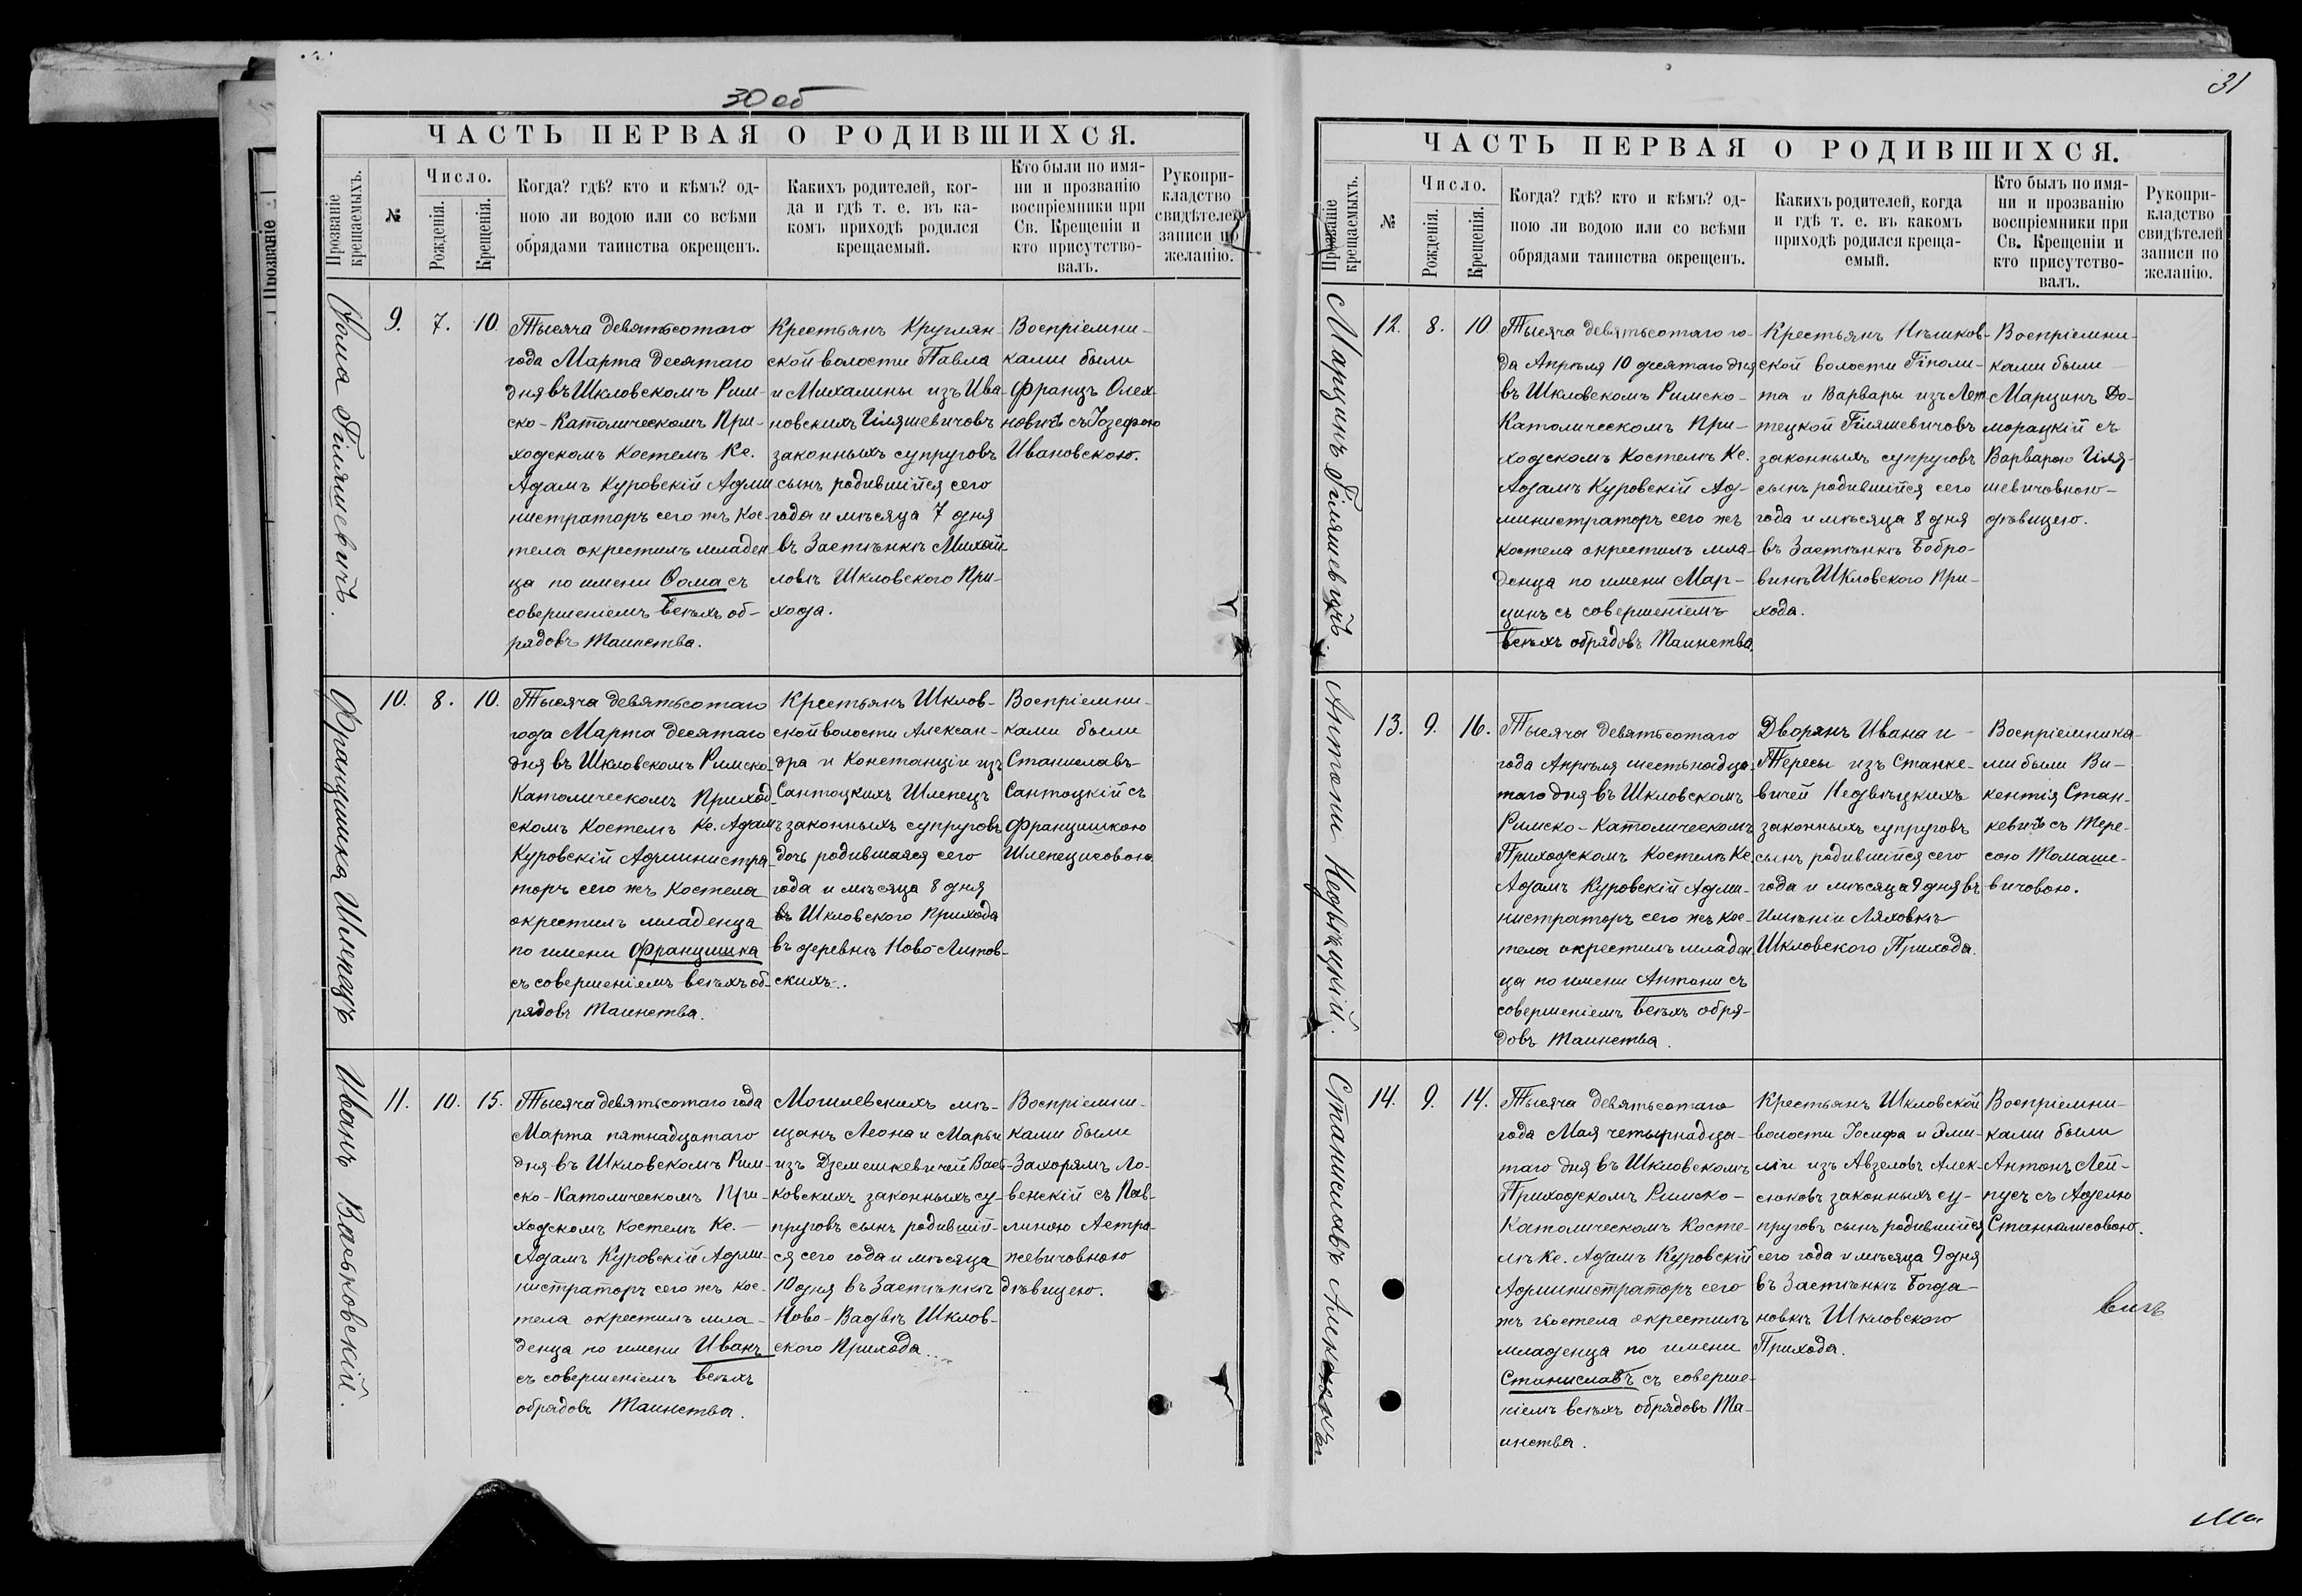 30 об
ЧАСТЬ ПЕРВАЯ О РОДИВШИХСЯ.
Прозваніе
крещаемыхъ.
№
Число.
Рожденія.
Крещенія.
Когда? гдѣ? кто и кѣмъ? од-
ною ли водою или со всѣми
обрядами таинства окрещенъ.
Какихъ родителей, ког-
да и гдѣ т. е. въ ка-
комъ приходѣ родился
крещаемый.
Кто были по имя-
ни и прозванію
воспріемники при
Св. Крещеніи и
кто присутство-
валъ.
Рукопри-
кладство
свидѣтелей
записи по
желанію.
Ѳома Гіляшевичъ.
9.
7.
10.
Тысяча девятьсотаго
года Марта десятаго
дня въ Шкловскомъ Рим-
ско-Католическомъ При-
ходскомъ Костелѣ Кс.
Адамъ Куровскій Адми
нистраторъ сего жъ Кос-
тела окрестилъ младен
ца по имени Ѳома съ
совершеніемъ всѣхъ об-
рядовъ Таинства.
Крестьянъ Круглян
ской волости Павла
и Михалины изъ Ива-
новскихъ Гіляшевичовъ
законныхъ супруговъ
сынъ родившійся сего
года и мѣсяца 7 дня
въ Застѣнкѣ Михай-
ловкѣ Шкловского При-
хода.
Воспріемни-
ками были
Францъ Олех-
новичъ съ Іозефою
Ивановскою.
Францишка Шлепецъ
10.
8.
10.
Тысяча девятьсотаго
года Марта десятаго
дня въ Шкловскомъ Римско-
Католическомъ Приход-
скомъ Костелѣ Кс. Адамъ
Куровскій Администра-
торъ сего жъ Костела
окрестилъ младенца
по имени Францишка
съ совершеніемъ всѣхъ об-
рядовъ Таинства.
Крестьянъ Шклов-
ской волости Алексан-
дра и Констанціи изъ
Сантоцкихъ Шлепецъ
законныхъ супруговъ
дочь родившаяся сего
года и мѣсяца 8 дня
въ Шкловского Прихода
въ деревнѣ Ново-Литов-
скихъ.
Воспріемни-
ками были
Станиславъ
Сантоцкій съ
Францишкою
Шлепецисовою.
Иванъ Васьковскій.
11.
10.
15.
Тысяча девятьсотаго года
Марта пятнадцатаго
дня въ Шкловскомъ Рим-
ско-Католическомъ При-
ходскомъ Костелѣ Кс. —
Адамъ Куровскій Адми-
нистраторъ сего жъ Кос-
тела окрестилъ мла-
денца по имени Иванъ
съ совершеніемъ всѣхъ
обрядовъ Таинства.
Могилевскихъ мѣ-
щанъ Леона и Марьи
изъ Дземешкевичей Вась-
ковскихъ законныхъ су-
пруговъ сынъ родивший-
ся сего года и мѣсяца
10 дня въ Застѣнкѣ
Ново-Вадвѣ Шклов-
ского Прихода.
Воспріемни-
ками были
Захорямъ Ло-
венскій съ Пав-
линою Астра-
жевичовною
дѣвицею.
31
ЧАСТЬ ПЕРВАЯ О РОДИВШИХСЯ.
Прозваніе
крещаемыхъ.
№
Число.
Рожденія.
Крещенія.
Когда? гдѣ? кто и кѣмъ? од-
ною ли водою или со всѣми
обрядами таинства окрещенъ.
Какихъ родителей, когда
и гдѣ т. е. въ какомъ
приходѣ родился креща-
емый.
Кто былъ по имя-
ни и прозванію
воспріемники при
Св. Крещеніи и
кто присутство-
валъ.
Рукопри-
кладство
свидѣтелей
записи по
желанію.
Марцинъ Гіляшевичъ.
12.
8.
10.
Тысяча девятьсотаго го-
да Апрѣля 10 десятаго дня
въ Шкловскомъ Римско-
Католическомъ При-
ходскомъ Костелѣ Кс.
Адамъ Куровскій Ад-
министраторъ сего жъ
костела окрестилъ мла-
денца по имени Мар-
цинъ съ совершеніемъ
всѣхъ обрядовъ Таинства.
Крестьянъ Нѣшков-
ской волости Гіполи-
та и Варвары изъ Лет
тецкой Гіляшевичовъ
законныхъ супруговъ
сынъ родившійся сего
года и мѣсяца 8 дня
въ Застѣнкѣ Бобро-
винѣ Шкловского При-
хода.
Воспріемни-
ками были
Марцинъ До-
морацкій съ
Варварою Гіля-
шевичовною
дѣвицею.
Антони Недвѣцкій.
13.
9.
16.
Тысяча девятьсотаго
года Апрѣля шестьнадца-
таго дня въ Шкловскомъ
Римско-Католическомъ
Приходскомъ Костелѣ Кс.
Адамъ Куровскій Адми-
нистраторъ сего жъ Кос-
тела окрестилъ младен-
ца по имени Антони съ
совершеніемъ всѣхъ обря-
довъ Таинства.
Дворянъ Ивана и
Тересы изъ Станке-
вичей Недвѣцкихъ
законныхъ супруговъ
сынъ родившійся сего
года и мѣсяца 9 дня въ
Имѣніи Ляховкѣ
Шкловского Прихода.
Воспріемника-
ми были Ви-
кентія Стан-
кевичъ съ Тере-
сою Томаше-
вичовою.
Станиславъ
14.
9.
14.
Тысяча девятьсотаго
года Мая четырнадца-
таго дня въ Шкловскомъ
Приходскомъ Римско-
Католическомъ Косте-
лѣ Кс. Адамъ Куровскій
Администраторъ сего
жъ костела окрестилъ
младенца по имени
Станиславъ съ соверше-
ніемъ всѣхъ обрядовъ Та-
инства.
Крестьянъ Шкловской
волости Іосифа и Эми-
ліи изъ Авзеловъ Алек-
сюковъ законныхъ су-
пруговъ сынъ родившійся
сего года и мѣсяца 9 дня
въ Застѣнкѣ Богда-
новкѣ Шкловского
Прихода.
Воспріемни-
ками были
Антонъ Лей-
пусъ съ Аделю
Станкалисовою.